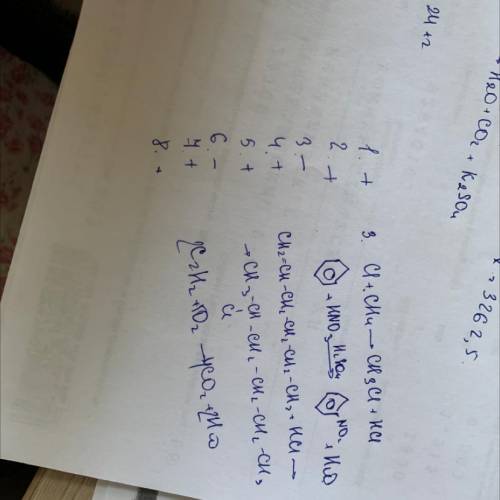 24 + 2
+ H2O + CO2 + K2SO4
x = 3262,5
1. +
2. +
3. –
4. +
5. +
6. –
7. +
8. +
3. Cl + CH4 → CH3Cl + HCl
+ HNO3 H2SO4 → NO2 + H2O
CH2=CH-CH2-CH2-CH2-CH3 + HCl →
→ CH3-CH-CH2-CH2-CH2-CH3
Cl
2C2H2 + 5O2 → 4CO2 + 2H2O